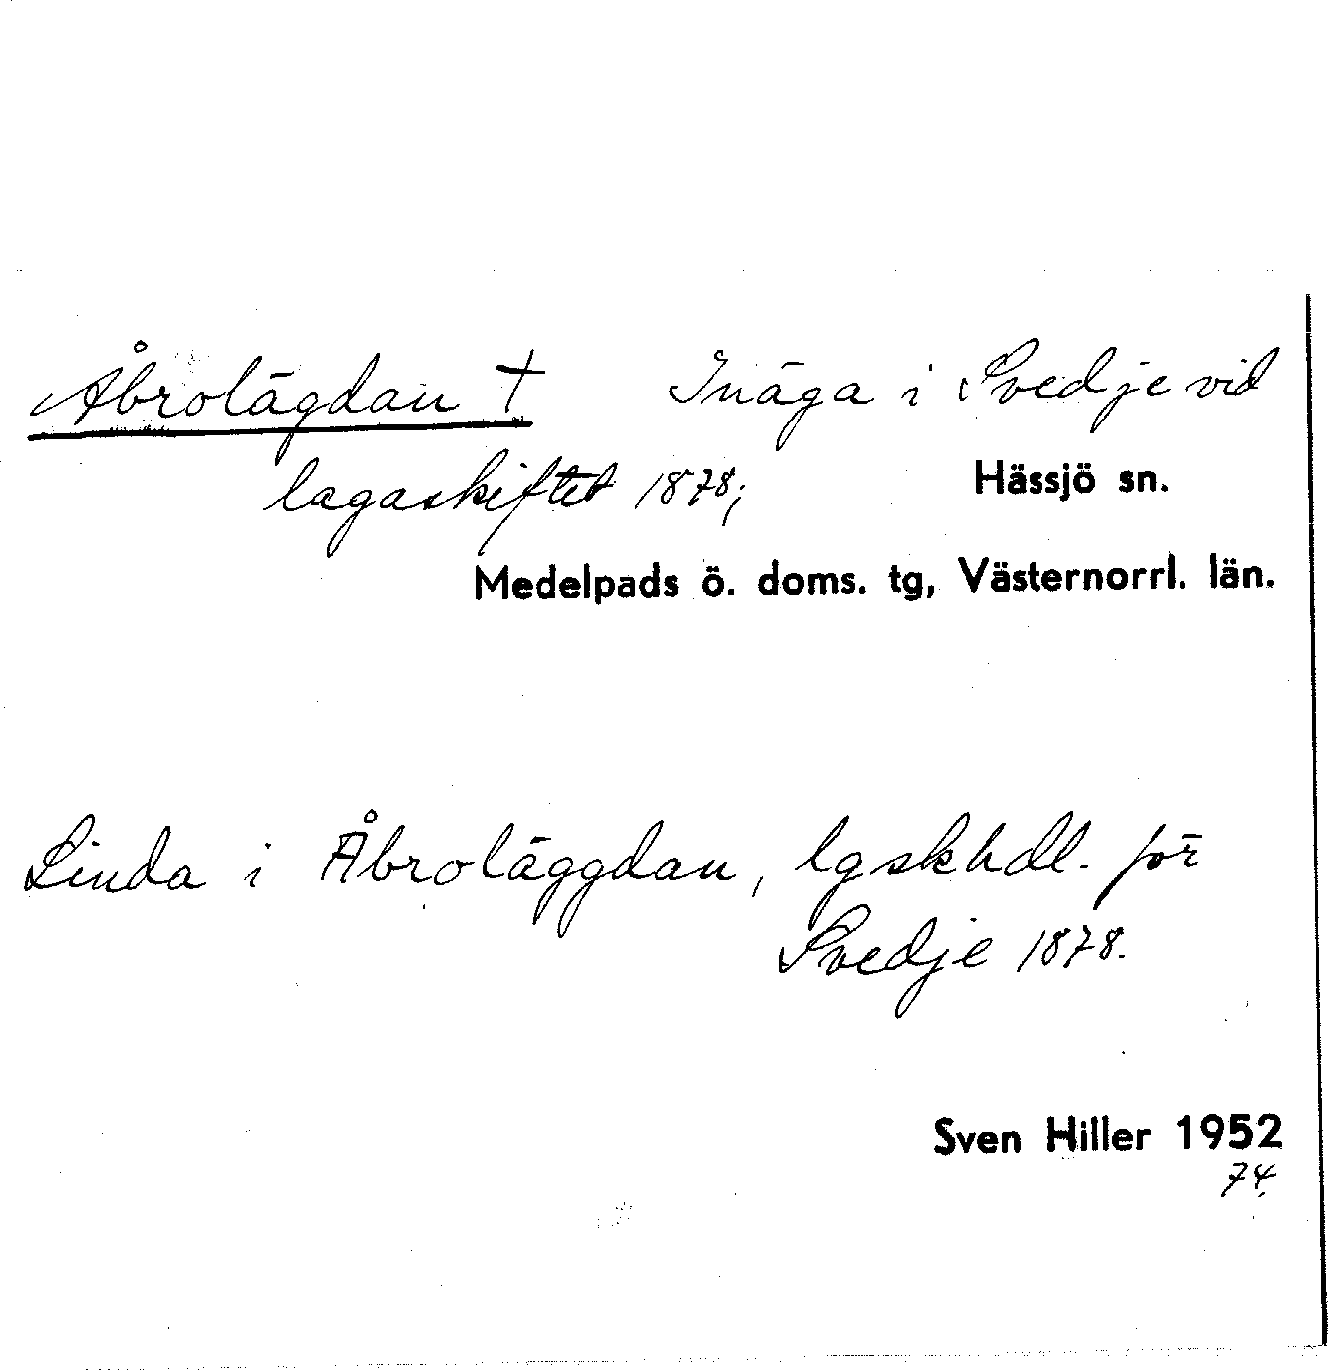 Åbrolägdan † Inäga i Svedje vid
lagaskiftet 1878; Hässjö sn.
Medelpads ö. doms. tg, Västernorrl. län.
Linda i Åbroläggdan, lgskhdl. för
Svedje 1878.
Sven Hiller 1952
74.